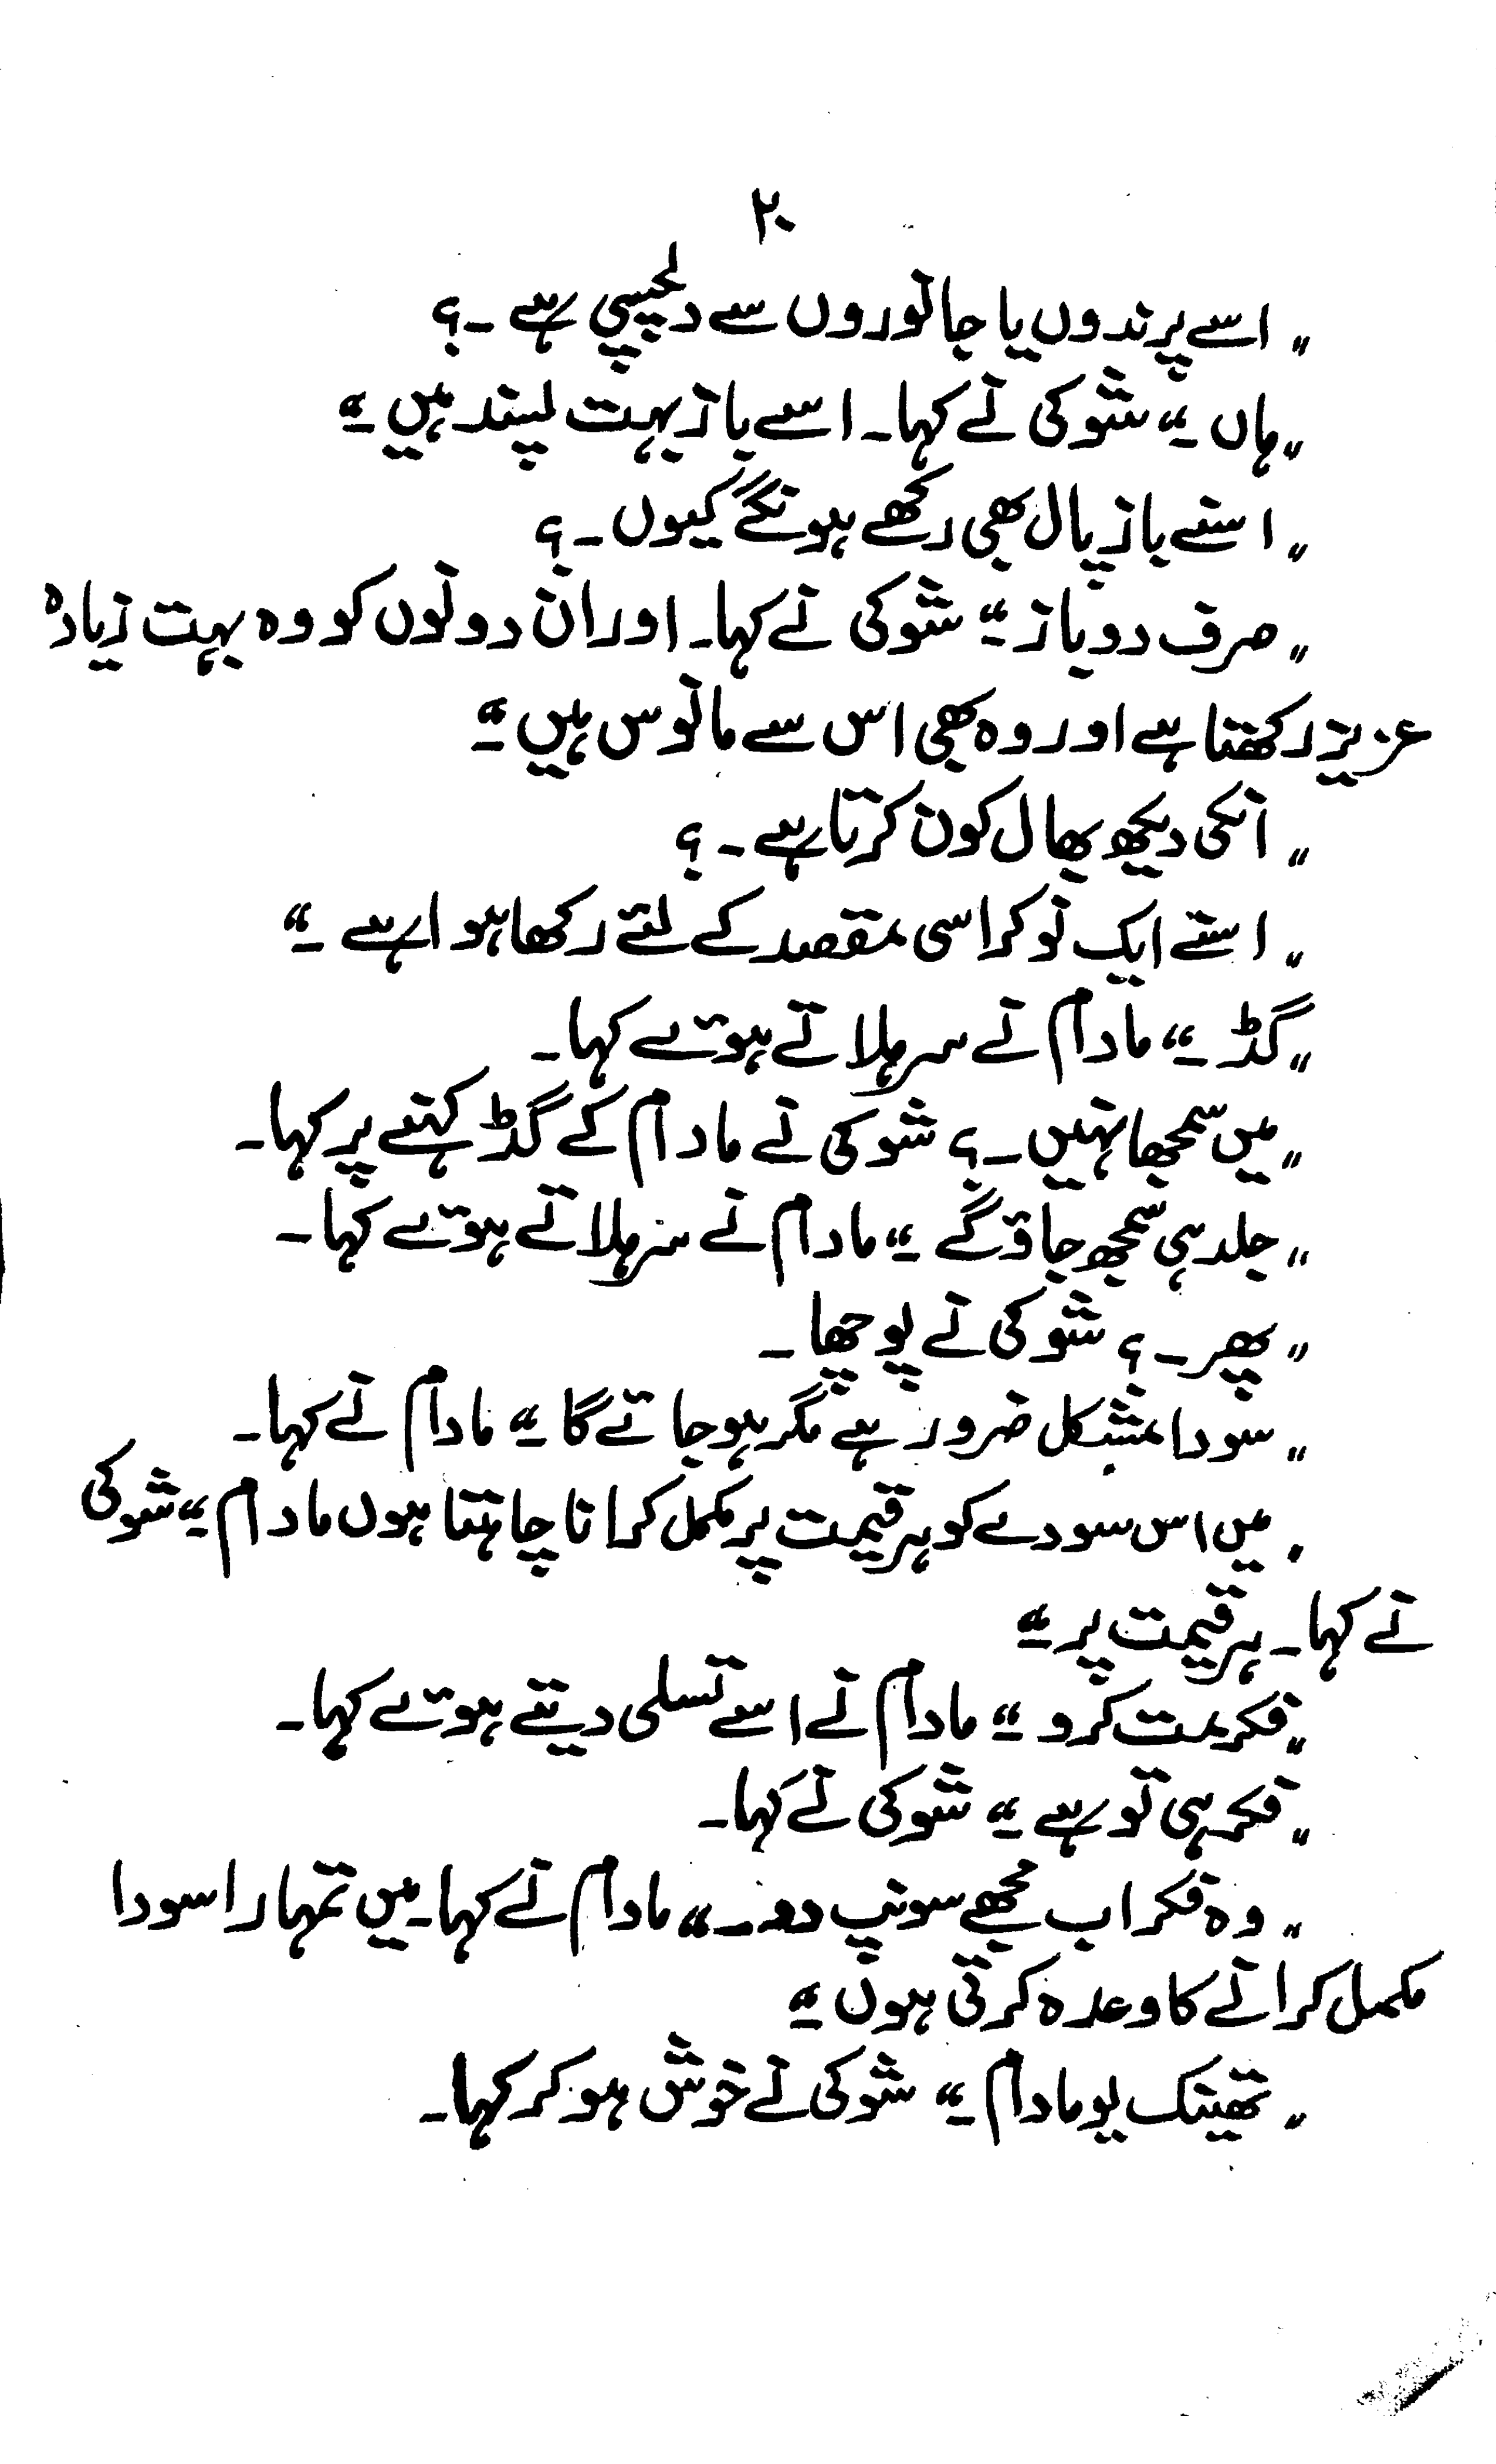 ۲۰
"اسے پرندوں یا جانوروں سے دلچسپی ہے ۔؟
"ہاں ۔" شوکی نے کہا۔ اسے باز بہت پسند ہیں ۔"
"اسنے باز پال بھی رکھے ہونگے کیوں ۔؟
"صرف دو باز ۔" شوکی نے کہا۔ اور ان دونوں کو وہ بہت زیادہ
عزیز رکھتا ہے اور وہ بھی اس سے مانوس ہیں ۔"
"انکی دیکھ بھال کون کرتا ہے ۔؟
"اسنے ایک نوکر اسی مقصد کے لئے رکھا ہوا ہے ۔"
"گڈ ۔" مادام نے سر ہلاتے ہوئے کہا۔
"میں سمجھا نہیں ۔؟ شوکی نے مادام کے گڈ کہنے پر کہا۔
"جلد ہی سمجھ جاؤ گے ۔" مادام نے سر ہلاتے ہوئے کہا ۔
"پھر ۔؟ شوکی نے پوچھا ۔
"سودا مشکل ضرور ہے مگر ہو جائے گا ۔" مادام نے کہا۔
"میں اس سودے کو ہر قیمت پر مکمل کرانا چاہتا ہوں مادام ۔" شوکی
نے کہا۔ ہر قیمت پر ۔"
"فکر مت کرو ۔" مادام نے اسے تسلی دیتے ہوئے کہا۔
"فکر ہی تو ہے ۔" شوکی نے کہا۔
"وہ فکر اب مجھے سونپ دو ۔" مادام نے کہا۔ میں تمہارا سودا
مکمل کرانے کا وعدہ کرتی ہوں ۔"
"تھینک یو مادام ۔" شوکی نے خوش ہو کر کہا۔